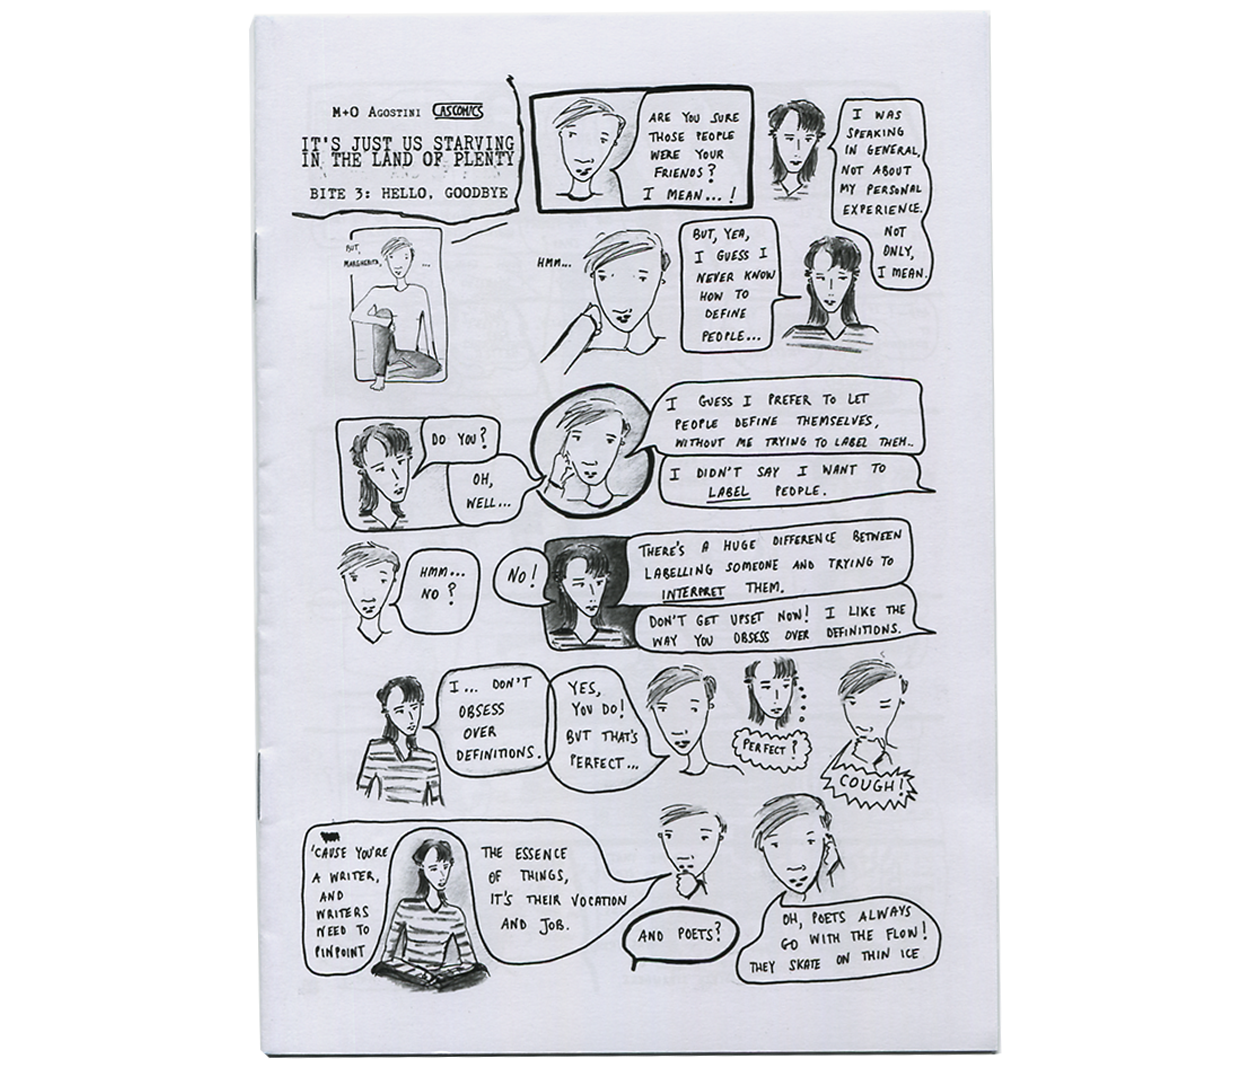 M+O AGOSTINI CASCOMICS
IT'S JUST US STARVING
IN THE LAND OF PLENTY
BITE 3: HELLO, GOODBYE
ARE YOU SURE
THOSE PEOPLE
WERE YOUR
FRIENDS?
I MEAN...!
I WAS
SPEAKING
IN GENERAL,
NOT ABOUT
MY PERSONAL
EXPERIENCE.
NOT
ONLY,
I MEAN.
BUT,
MARGHERITA,
...
HMM...
BUT, YEA,
I GUESS I
NEVER KNOW
HOW TO
DEFINE
PEOPLE...
DO YOU?
OH,
WELL...
I GUESS I PREFER TO LET
PEOPLE DEFINE THEMSELVES,
WITHOUT ME TRYING TO LABEL THEM..
I DIDN'T SAY I WANT TO
LABEL PEOPLE.
HMM...
NO?
NO!
THERE'S A HUGE DIFFERENCE BETWEEN
LABELLING SOMEONE AND TRYING TO
INTERPRET THEM.
DON'T GET UPSET NOW! I LIKE THE
WAY YOU OBSESS OVER DEFINITIONS.
I... DON'T
OBSESS
OVER
DEFINITIONS.
YES,
YOU DO!
BUT THAT'S
PERFECT...
PERFECT?
COUGH!
'CAUSE YOU'RE
A WRITER,
AND
WRITERS
NEED TO
PINPOINT
THE ESSENCE
OF THINGS,
IT'S THEIR VOCATION
AND JOB.
AND POETS?
OH, POETS ALWAYS
GO WITH THE FLOW!
THEY SKATE ON THIN ICE